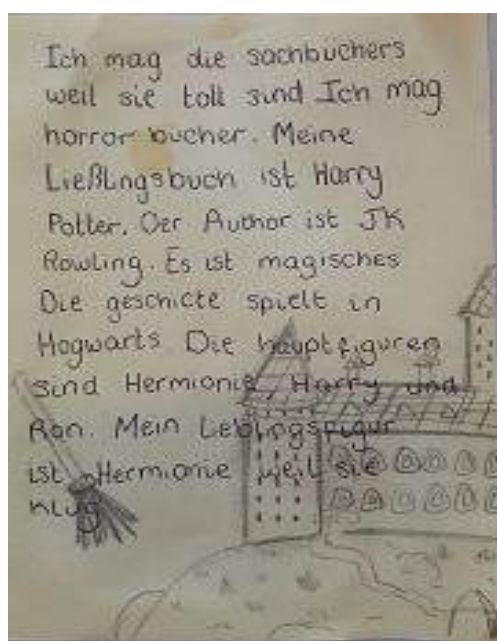 Ich mag die sachbuchers
weil sie toll sind Ich mag
horror bucher. Meine
Ließlingsbuch ist Harry
Potter. Der Author ist JK
Rowling. Es ist magisches
Die geschicte spielt in
Hogwarts. Die hauptfiguren
sind Hermionie, Harry und
Ron. Mein Lieblingsfigur
ist Hermionie weil sie
klug